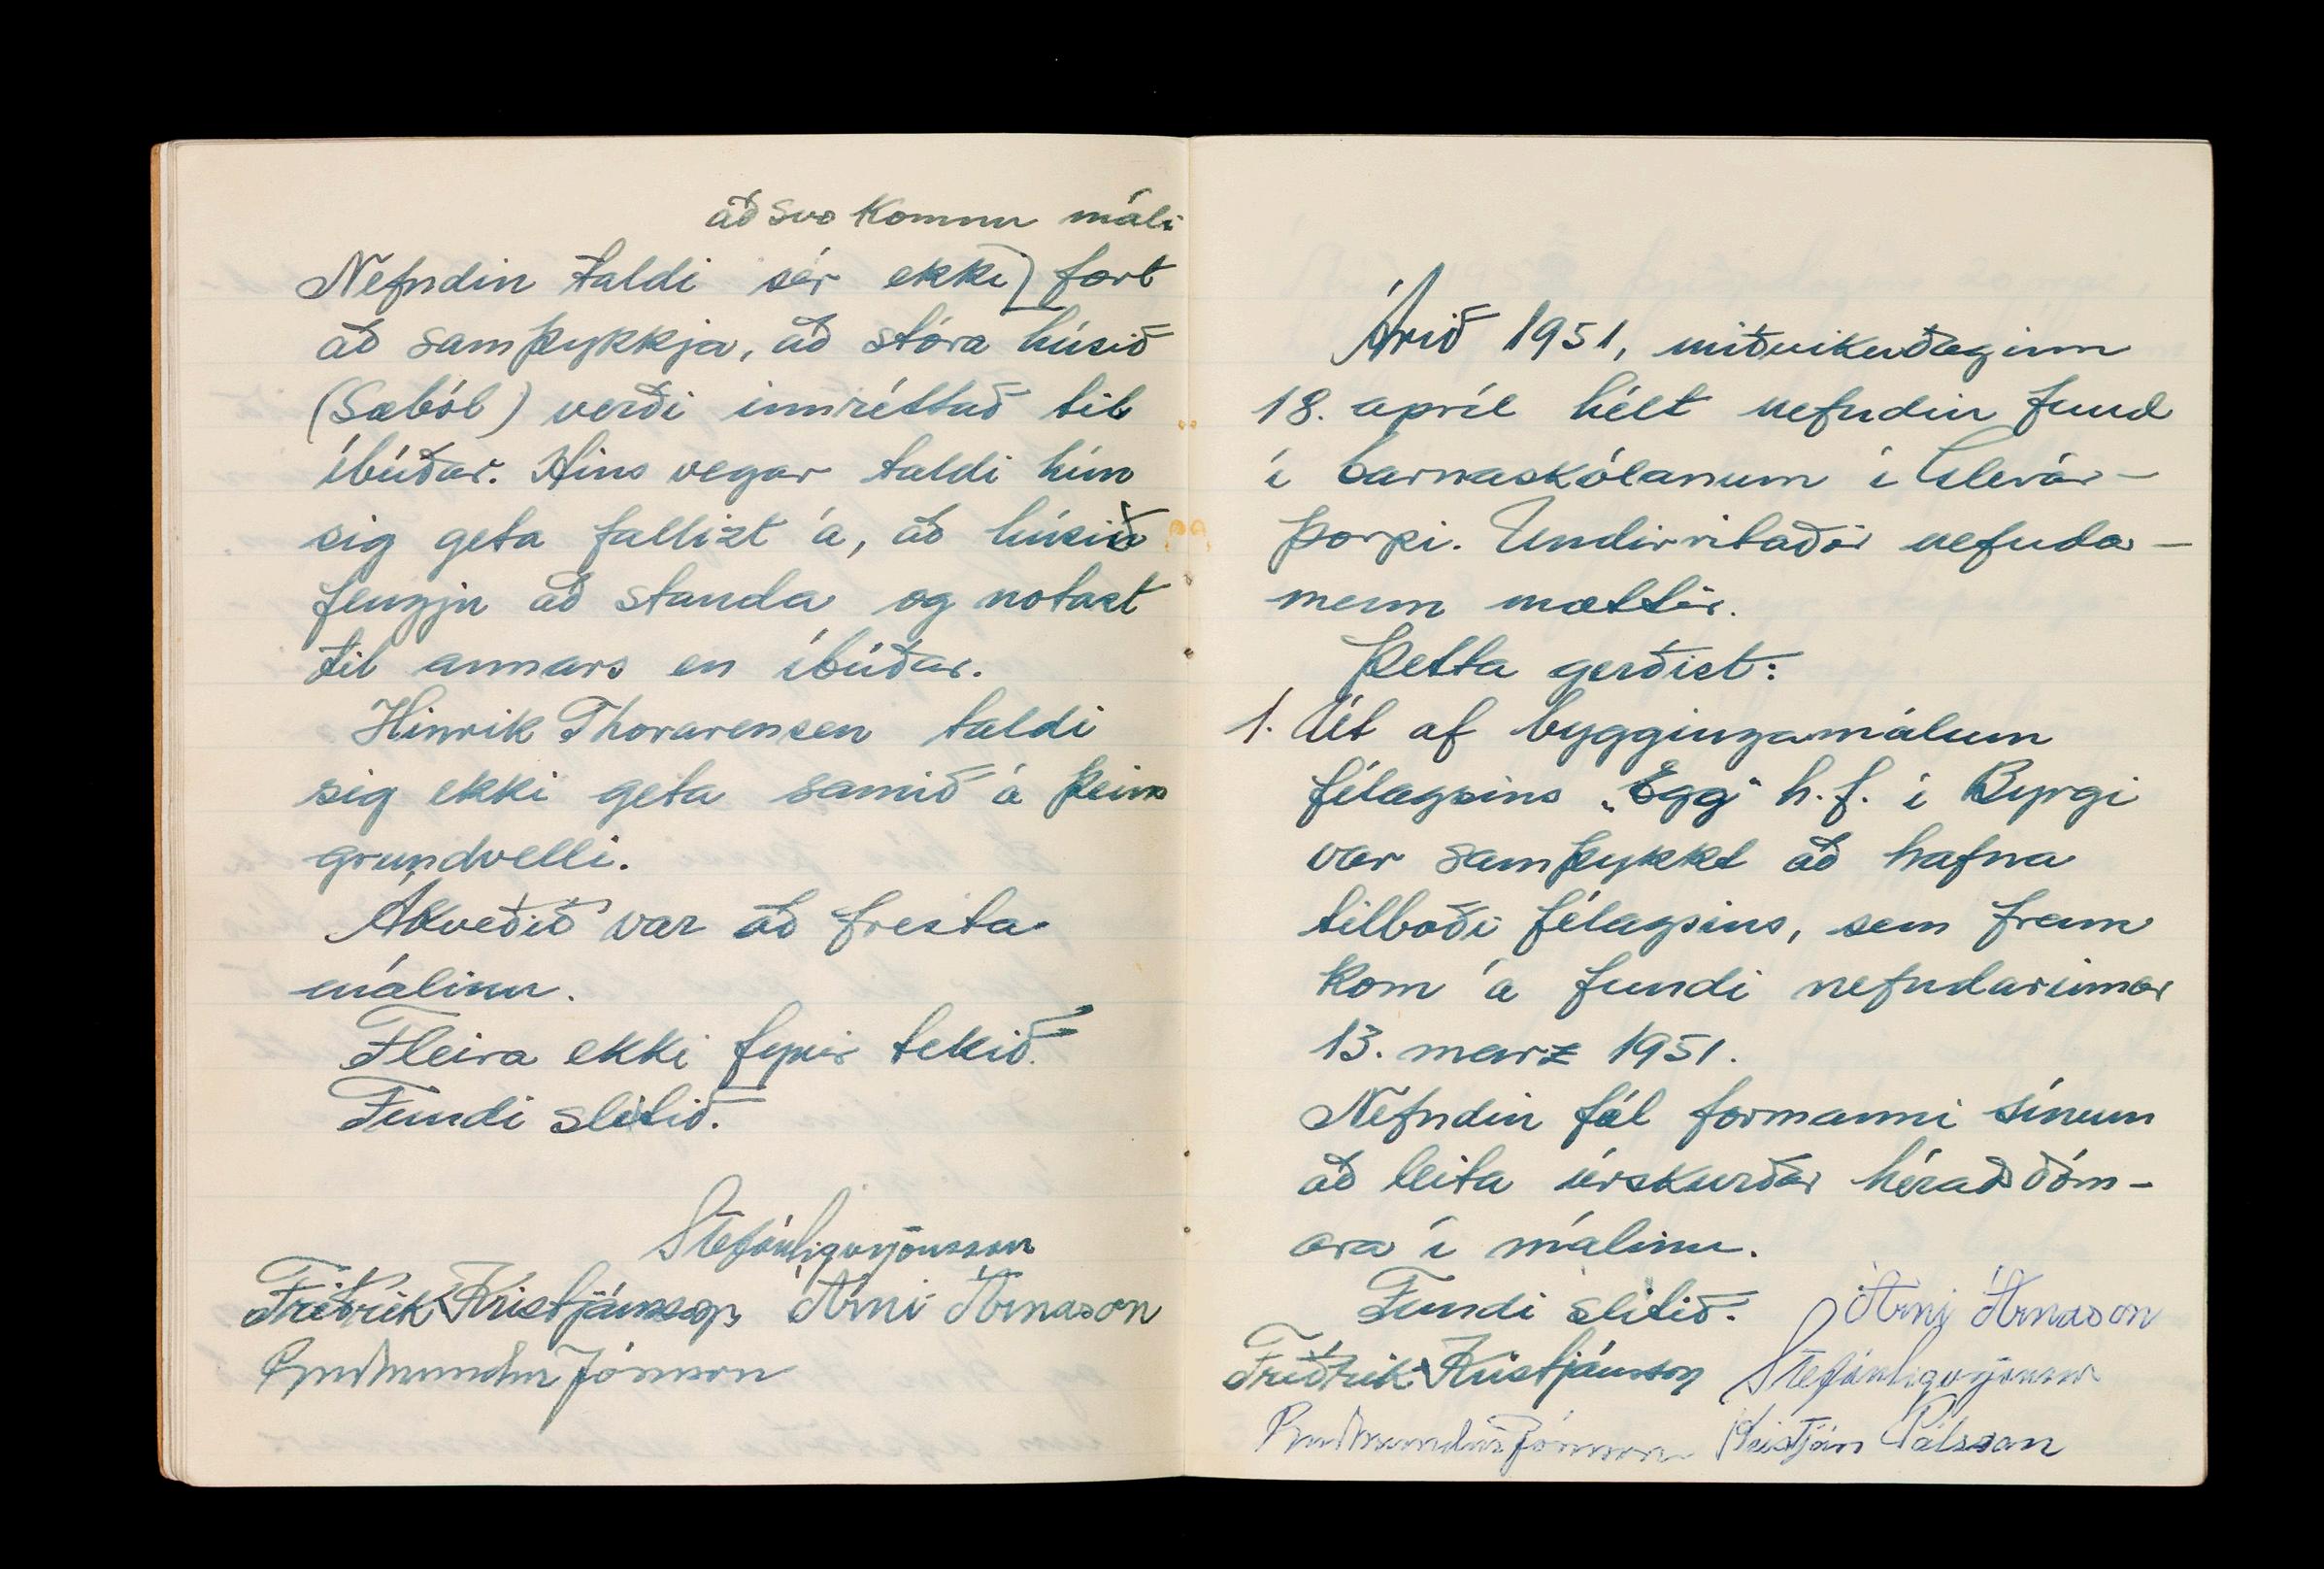 að svo komnu máli
Nefndin taldi sér ekki fært
að samþykkja, að stóra húsið
(Sæból) verði innréttað til
íbúðar. Hins vegar taldi hún
sig geta fallizt á, að húsið
fengju að standa og notast
til annars en íbúðar.
Hinrik Thorarensen taldi
sig ekki geta samið á þeim
grundvelli.
Ákveðið var að fresta
málinu.
Fleira ekki fyrir tekið.
Fundi slitið.
Stefán Ág. Jónsson
Friðrik Kristjánsson Árni Árnason
Guðmundur Jónsson
Árið 1951, miðvikudaginn
18. apríl hélt nefndin fund
í barnaskólanum í Glerár-
þorpi. Undirritaðir nefnda-
menn mættir.
Þetta gerðist:
1. Út af byggingamálum
félagsins „Egg" h.f. í Byrgi
var samþykkt að hafna
tilboði félagsins, sem fram
kom á fundi nefndarinnar
13. marz 1951.
Nefndin fól formanni sínum
að leita úrskurðar héraðsdóm-
ara í málinu.
Fundi slitið. Árni Árnason
Friðrik Kristjánsson Stefán Ág. Jónsson
Guðmundur Jónsson Kristján Pálsson